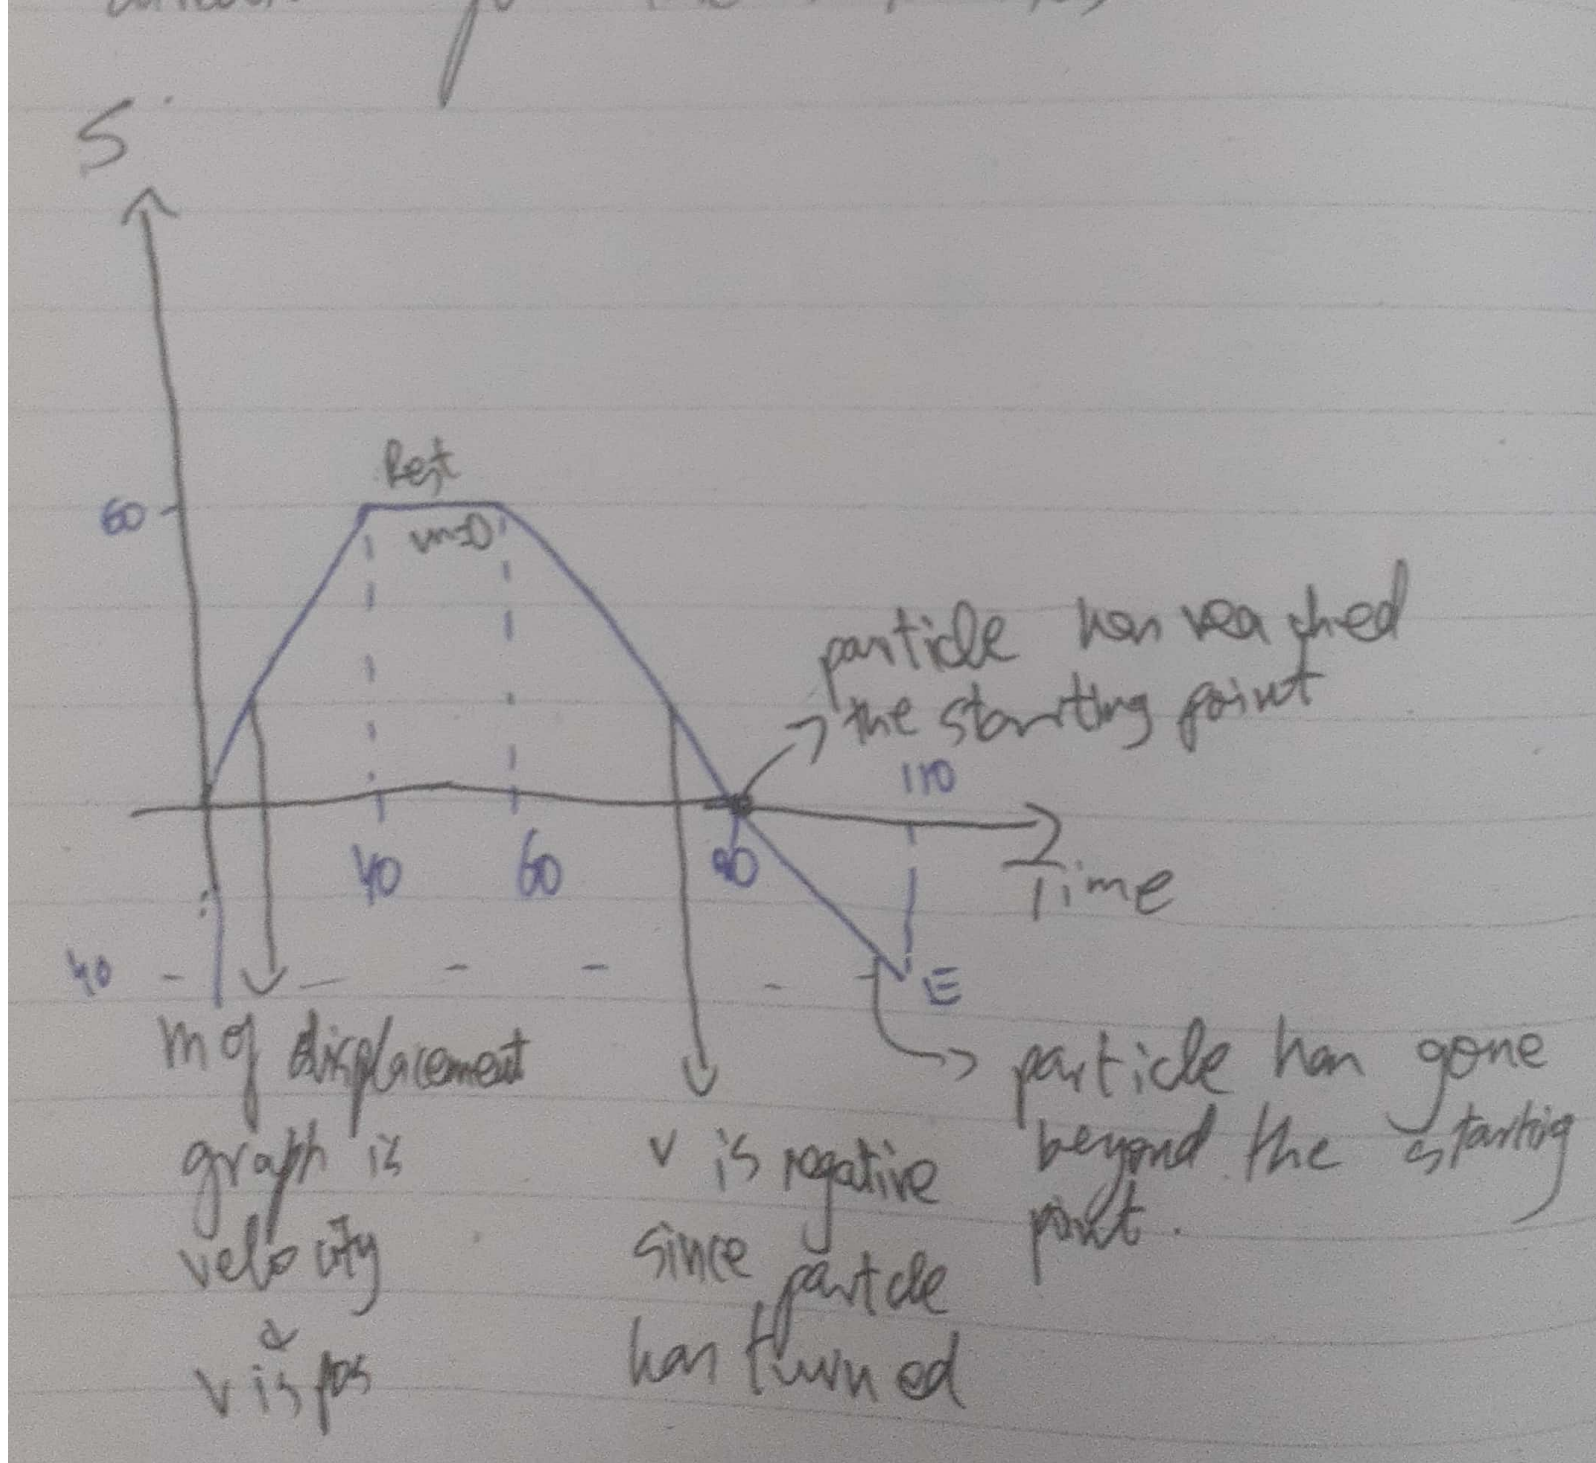 S
60
Rest
v=0
particle has reached
the starting point
110
40
60
90
Time
40
E
m of displacement
graph is
velocity
&
v is pos
v is negative
since partcle
has turned
particle has gone
beyond the starting
point.